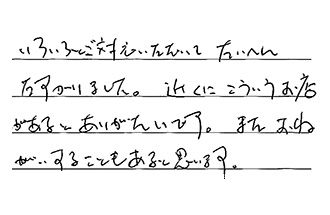 いろいろとご対応いただいて たいへん
たすかりました。 近くに こういう お店
があると ありがたいです。 また おね
がいすることもあると思います。